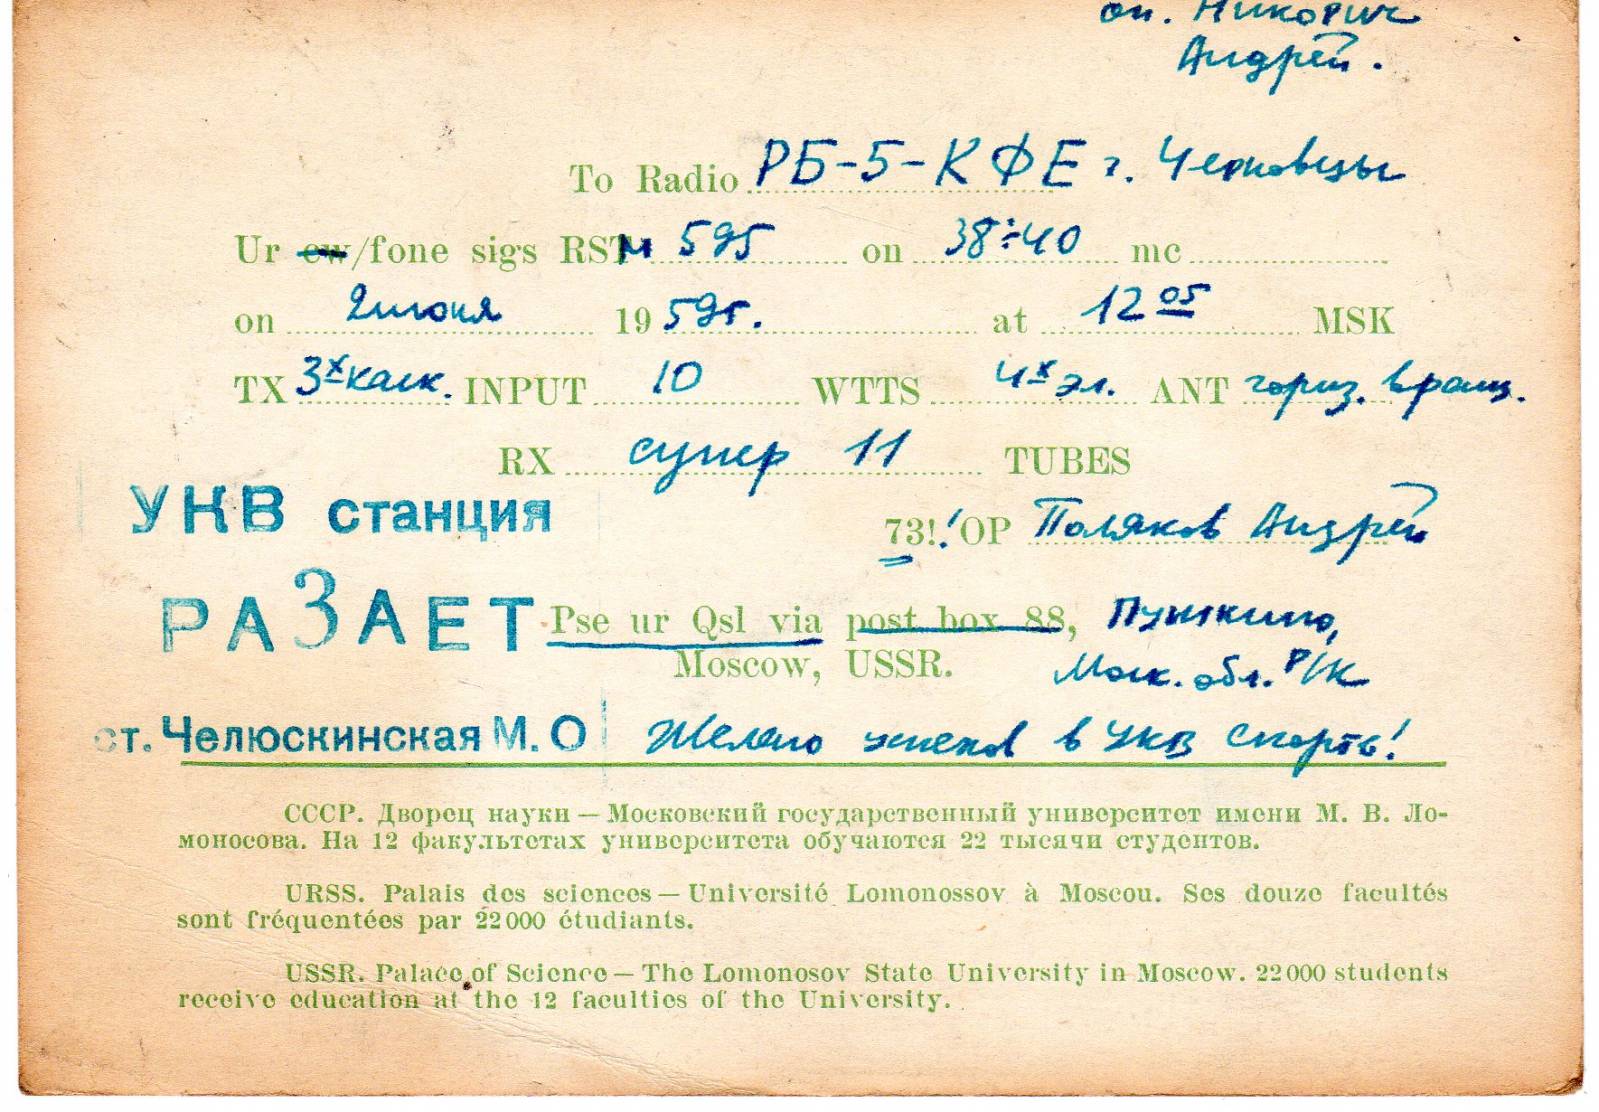 оп. Никович
Андрей.
To Radio РБ-5-КФЕ г. Черновцы
Ur cw/fone sigs RSTM 595 on 38÷40 mc
on 2 июня 1959г. at 12 05 MSK
TX 3х каск. INPUT 10 WTTS 4х эл. ANT гориз. вращ.
RX супер 11 TUBES
УКВ станция
73!! OP Поляков Андрей
РА3АЕТ
Pse ur Qsl via post box 88, Пушкино,
Moscow, USSR. Моск. обл. Р/К
ст. Челюскинская М. О
Желаю успехов в УКВ спорте!
СССР. Дворец науки — Московский государственный университет имени М. В. Ло-
моносова. На 12 факультетах университета обучаются 22 тысячи студентов.
URSS. Palais des sciences — Université Lomonossov à Moscou. Ses douze facultés
sont fréquentées par 22 000 étudiants.
USSR. Palace of Science — The Lomonosov State University in Moscow. 22 000 students
receive education at the 12 faculties of the University.